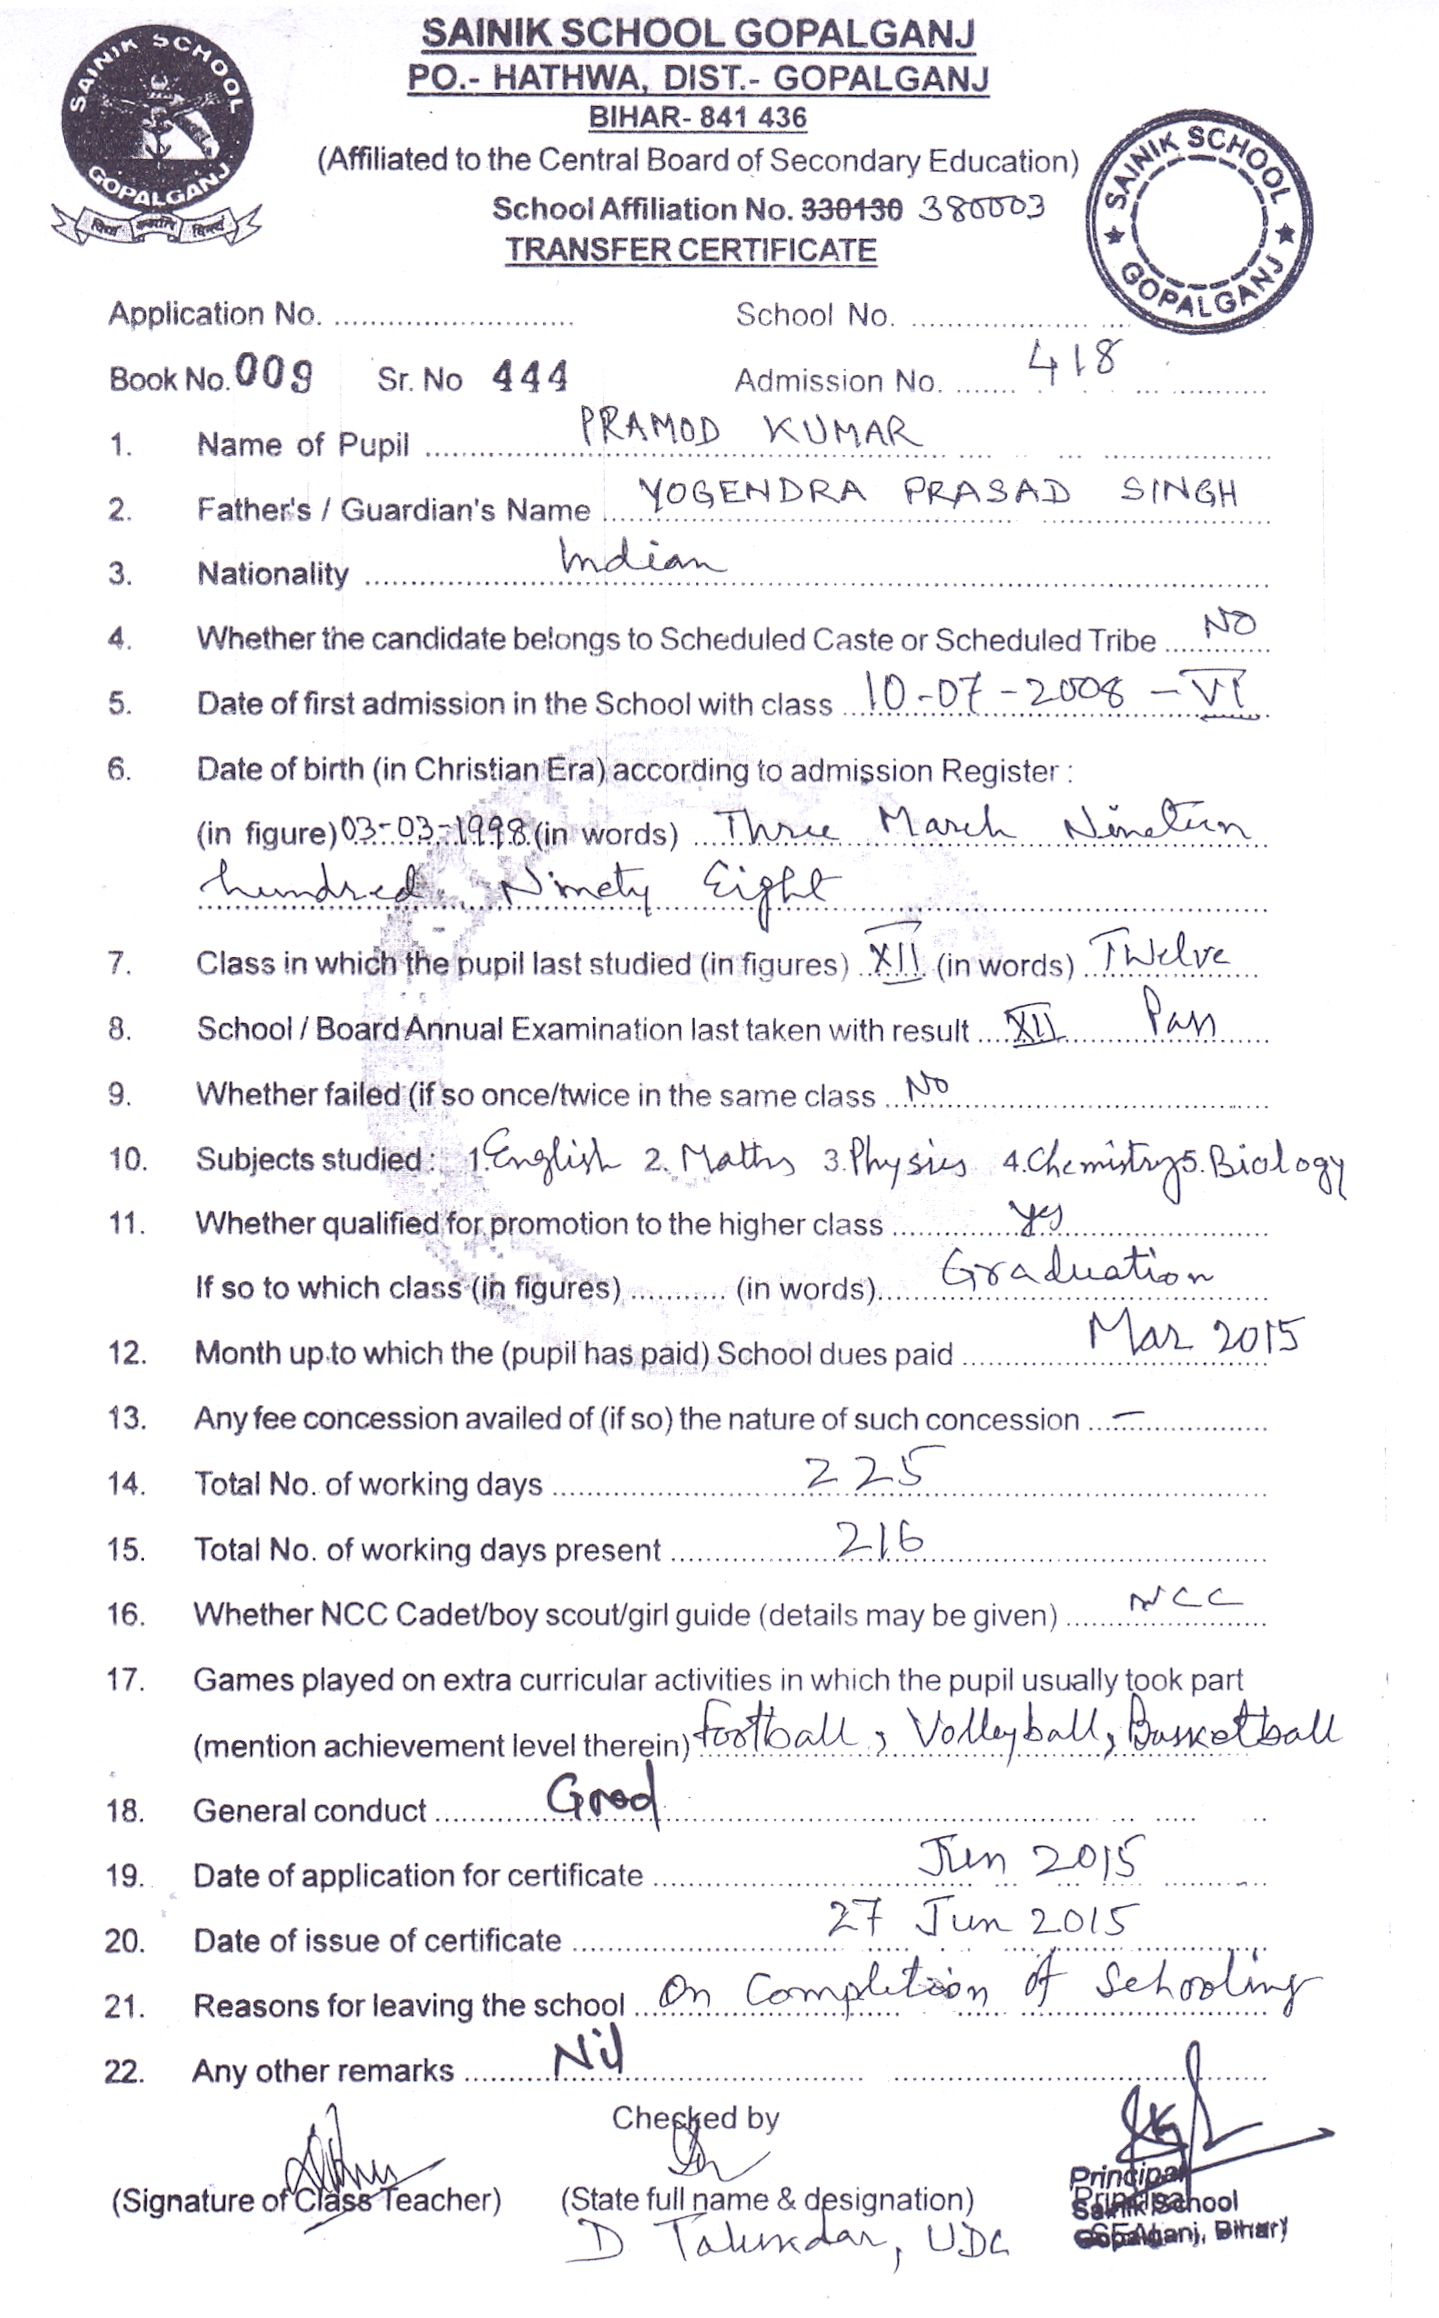 SAINIK SCHOOL GOPALGANJ
SAINIK SCHOOL GOPALGANJ
PO.- HATHWA, DIST.- GOPALGANJ
BIHAR- 841 436
(Affiliated to the Central Board of Secondary Education)
SAINIK SCHOOL GOPALGANJ
School Affiliation No. 330130 380003
TRANSFER CERTIFICATE
Application No. ........................... School No. ......................
Book No. 009 Sr. No 444 Admission No. 418
1. Name of Pupil PRAMOD KUMAR
2. Father's / Guardian's Name YOGENDRA PRASAD SINGH
3. Nationality Indian
4. Whether the candidate belongs to Scheduled Caste or Scheduled Tribe NO
5. Date of first admission in the School with class 10-07-2008 - VI
6. Date of birth (in Christian Era) according to admission Register :
(in figure) 03-03-1998 (in words) Three March Nineteen
hundred Ninety Eight
7. Class in which the pupil last studied (in figures) XII (in words) Twelve
8. School / Board Annual Examination last taken with result XII Pass
9. Whether failed (if so once/twice in the same class No
10. Subjects studied : 1. English 2. Maths 3. Physics 4. Chemistry 5. Biology
11. Whether qualified for promotion to the higher class yes
If so to which class (in figures) ............ (in words) Graduation
12. Month up to which the (pupil has paid) School dues paid Mar 2015
13. Any fee concession availed of (if so) the nature of such concession -
14. Total No. of working days 225
15. Total No. of working days present 216
16. Whether NCC Cadet/boy scout/girl guide (details may be given) NCC
17. Games played on extra curricular activities in which the pupil usually took part
(mention achievement level therein) Football, Volleyball, Basketball
18. General conduct Good
19. Date of application for certificate Jun 2015
20. Date of issue of certificate 27 Jun 2015
21. Reasons for leaving the school On Completion of Schooling
22. Any other remarks Nil
Checked by
(Signature of Class Teacher) (State full name & designation)
D Talukdar, UDC
Principal
Sainik School
Gopalganj, Bihar